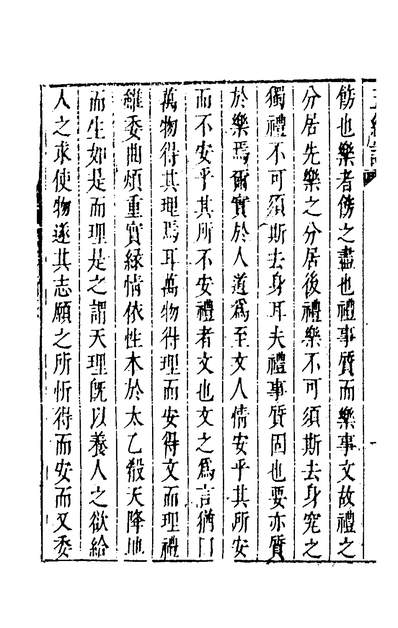 飭也樂者飭之盡也禮事質而樂事文故禮之
分居先樂之分居後禮樂不可須斯去身究之
獨禮不可須斯去身耳夫禮事質固也要亦質
於樂焉爾實於人道爲至文人情安乎其所安
而不安乎其所不安禮者文也文之爲言猶
萬物得其理焉耳萬物得理而安得文而理禮
雖委曲煩重實緣情依性本於太乙殽天降地
而生如是而理是之謂天理旣以養人之欲給
人之求使物遂其志願之所忻待而安而又委